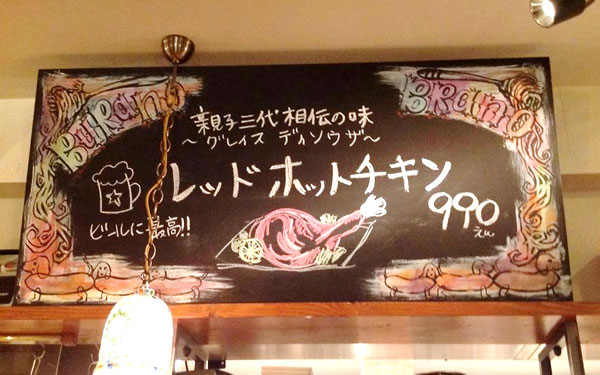 BURANO
BRANO
親子三代相伝の味
～グレイス ディソウザ～
レッドホットチキン
990
えん
ビールに最高!!